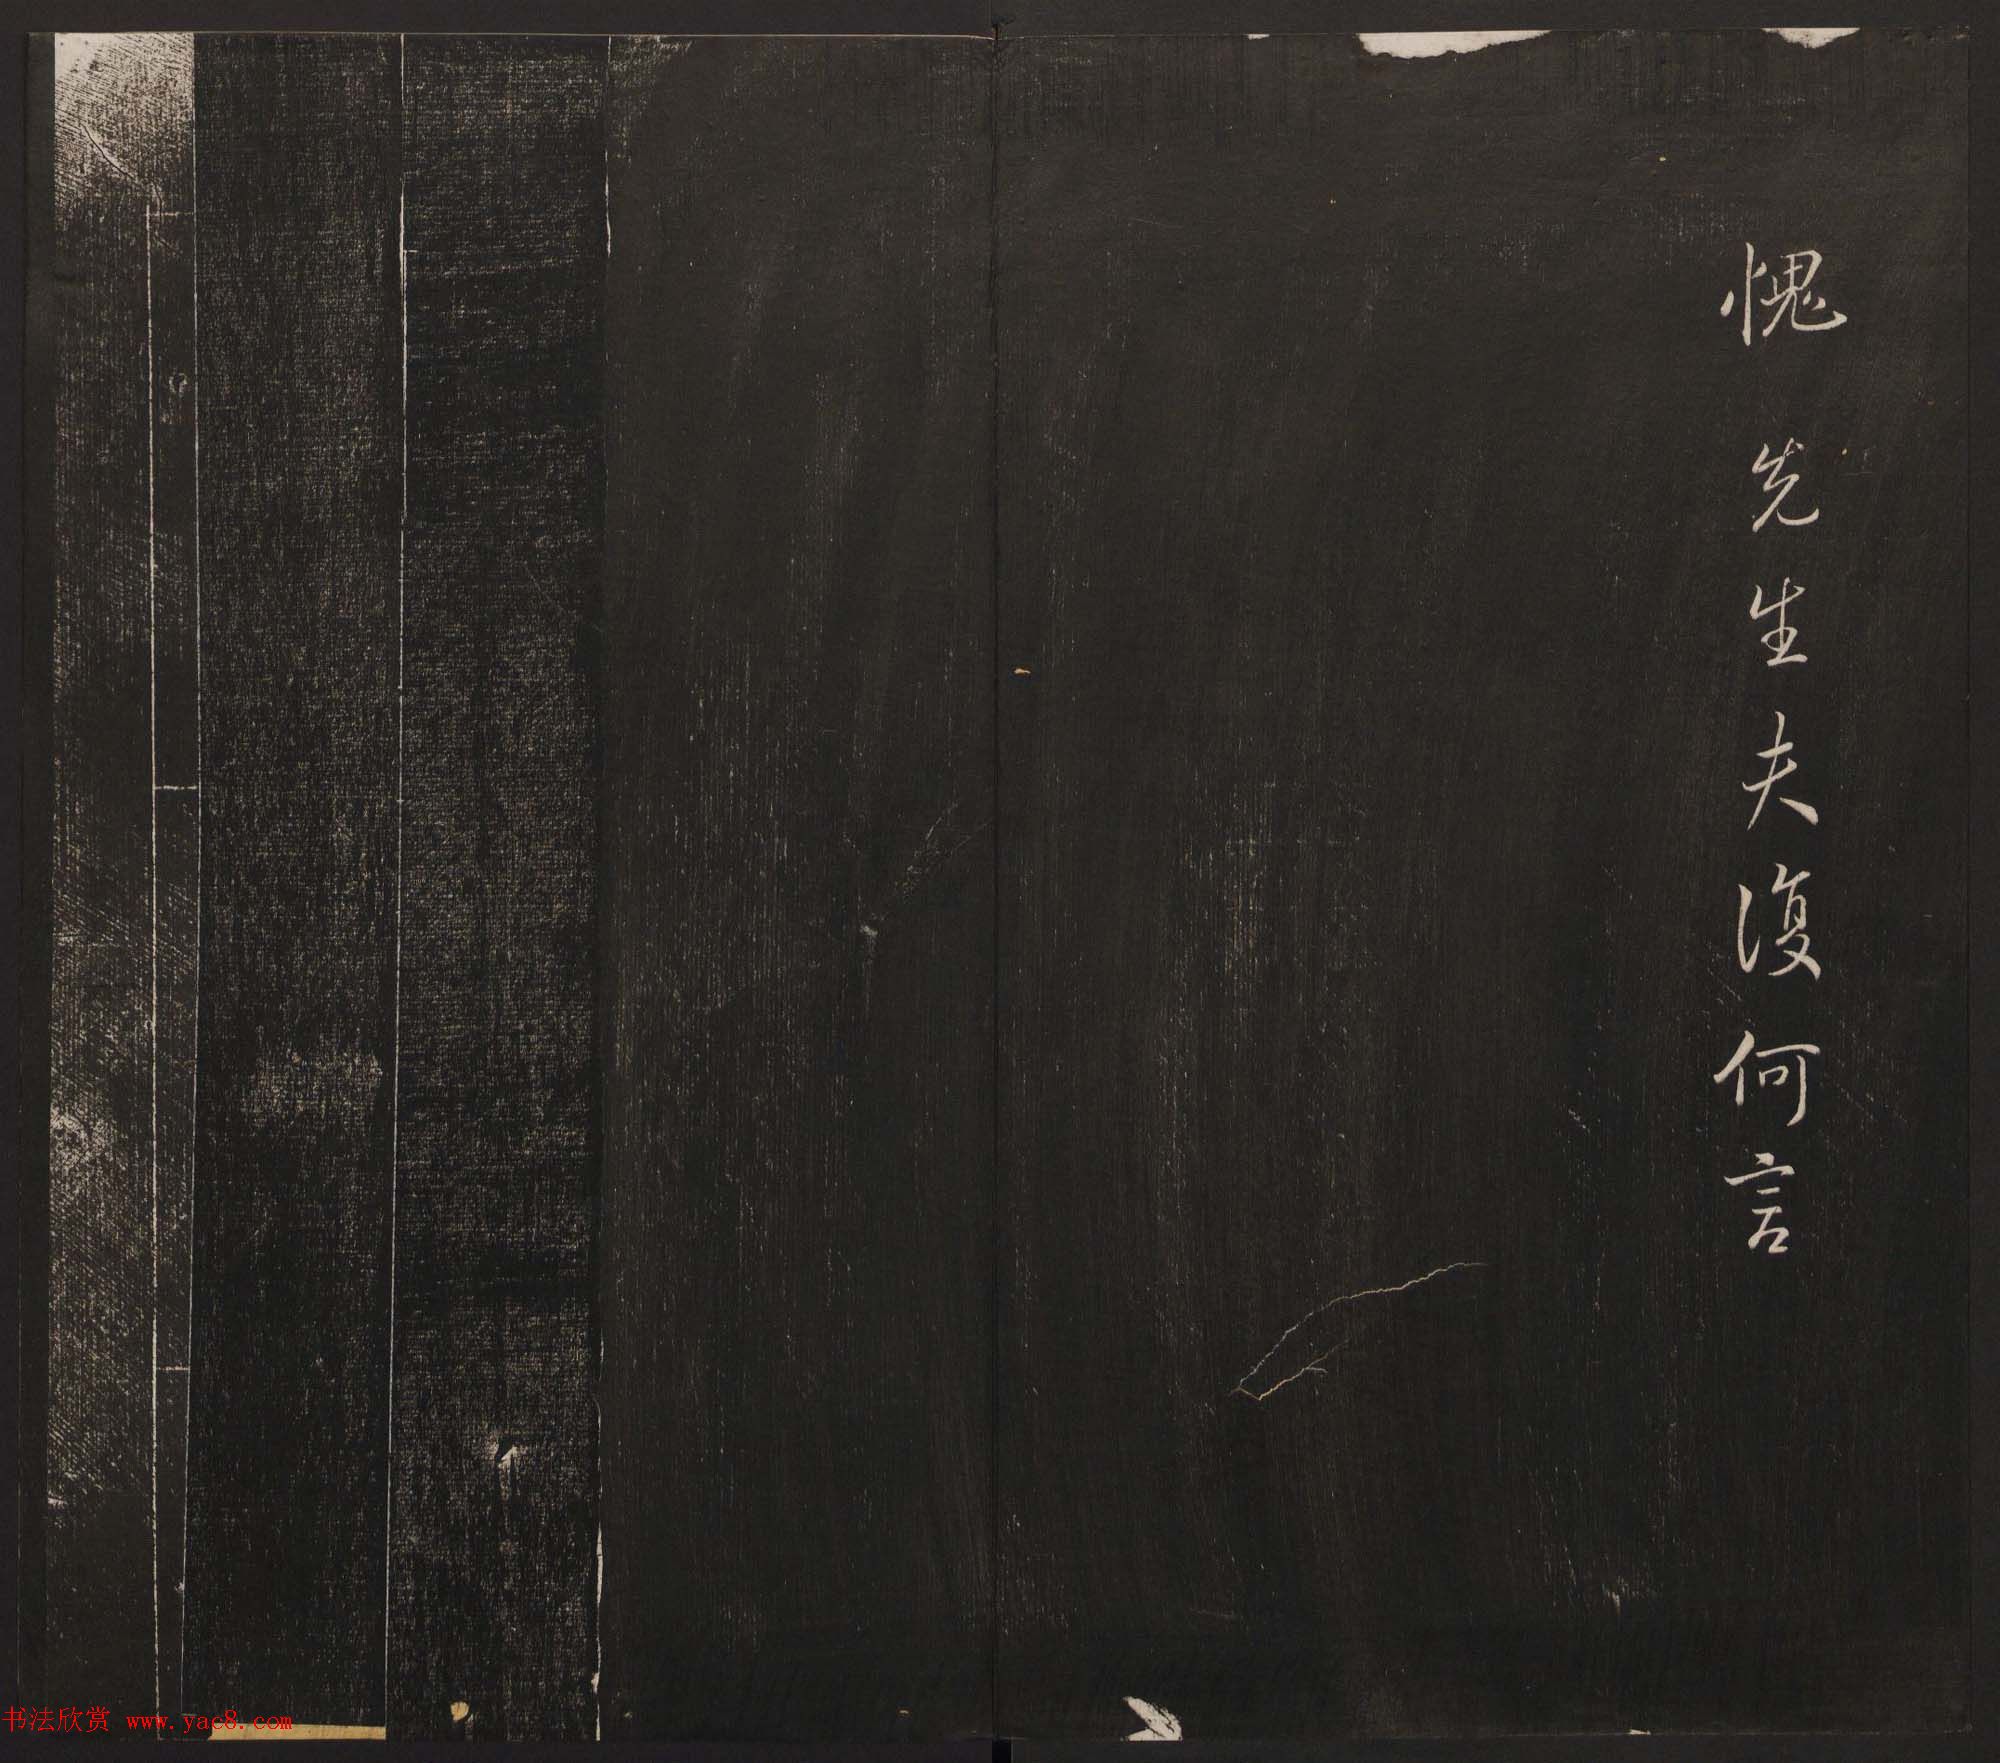 愧先生夫復何言
书法欣赏 www.yac8.com